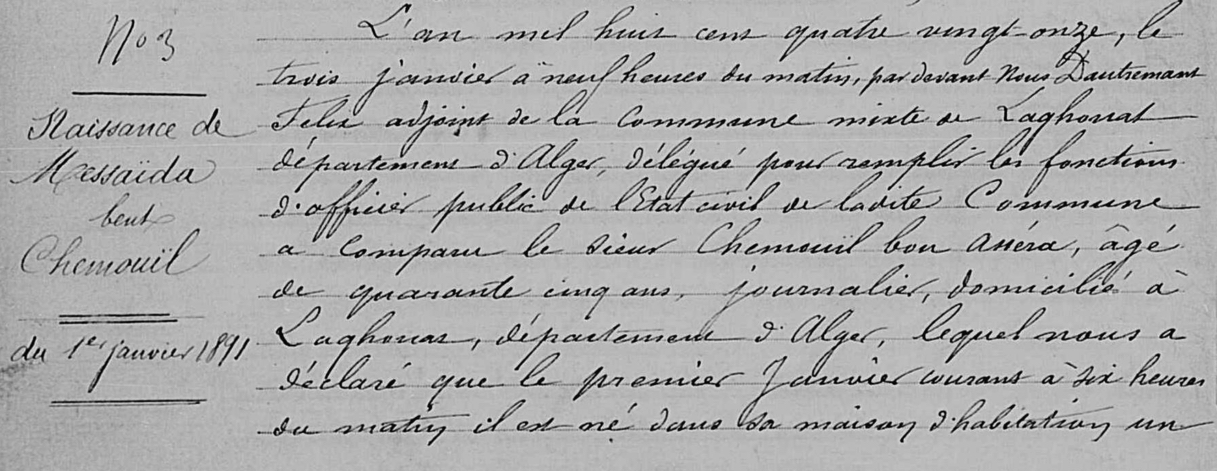 No 3
Naissance de
Messaïda
bent
Chemouïl
du 1er janvier 1891
L'an mil huit cent quatre vingt-onze, le
trois janvier à neuf heures du matin, par devant Nous Dautremant
Felix adjoint de la Commune mixte de Laghouat
département d'Alger, délégué pour remplir les fonctions
d'officier public de l'Etat civil de ladite Commune
a comparu le sieur Chemouïl bou Asséra, âgé
de quarante cinq ans, journalier, domicilié à
Laghouat, département d'Alger, lequel nous a
déclaré que le premier Janvier courant à six heures
du matin il est né dans sa maison d'habitation un